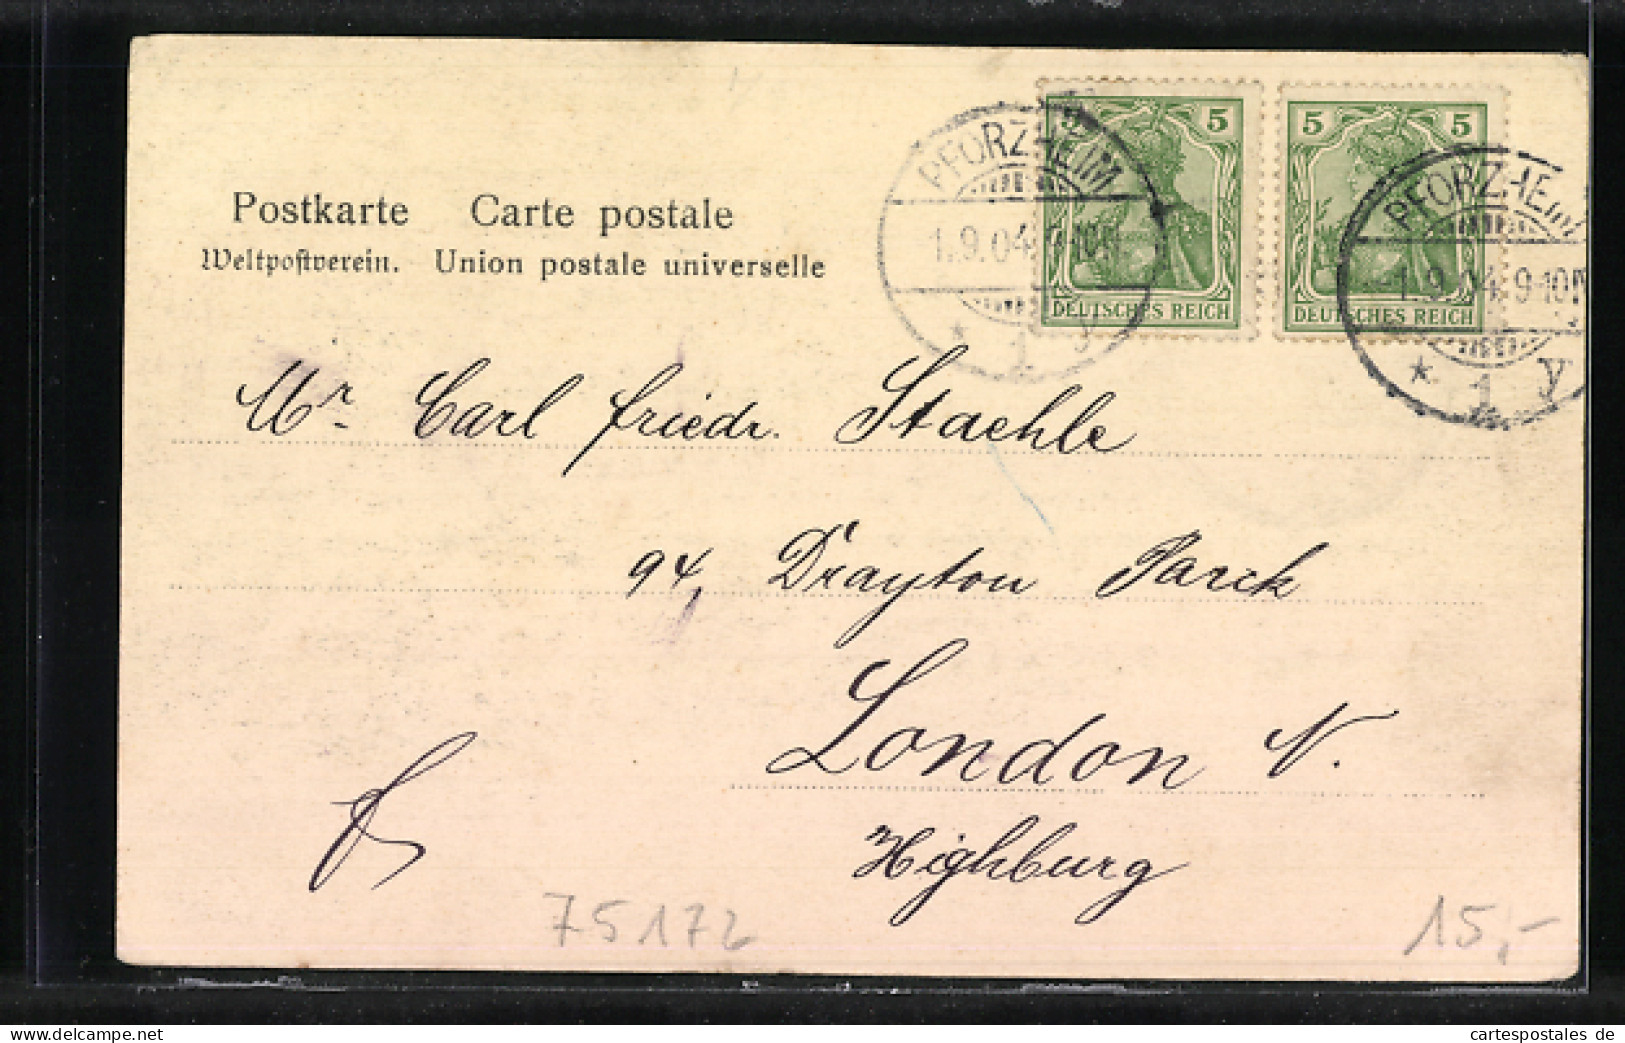 Postkarte Carte postale
Weltpostverein. Union postale universelle
5 5
DEUTSCHES REICH
5 5
DEUTSCHES REICH
PFORZHEIM
1.9.04.
* 1 y
PFORZHEIM
1.9.04.9-10N
* 1 y
Mr. Carl Friedr. Staehle
94, Drayton Parck
London N.
Highburg
75172
15,-
delcampe.net
cartespostales de